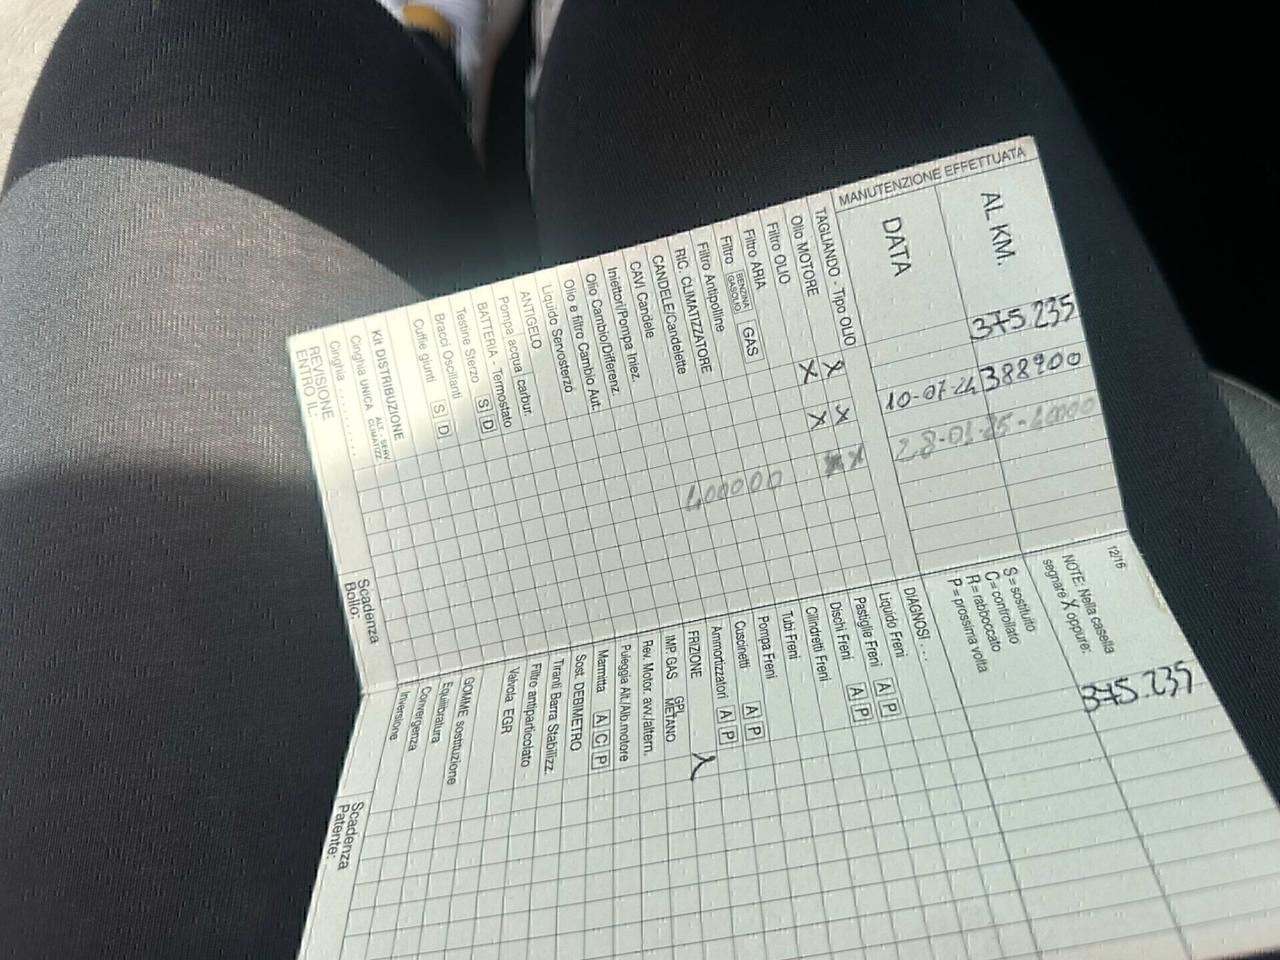 MANUTENZIONE EFFETTUATA
AL KM. 375.235 388900
DATA 10-07-24
TAGLIANDO - Tipo OLIO X X
Olio MOTORE X X
Filtro OLIO
Filtro ARIA
Filtro BENZINA GASOLIO GAS
Filtro Antipolline
RIC. CLIMATIZZATORE
CANDELE/Candelette
CAVI Candele
Iniettori/Pompa Iniez.
Olio Cambio/Differenz.
Olio e filtro Cambio Aut.
Liquido Servosterzo
ANTIGELO
Pompa acqua carbur.
BATTERIA - Termostato
Testine Sterzo S D
Bracci Oscillanti
Cuffie giunti S D
Kit DISTRIBUZIONE
Cinghia UNICA ALT. - SERV. CLIMATIZZ.
Cinghia ..........
REVISIONE
ENTRO IL:
Scadenza
Bollo:
12/16
NOTE: Nella casella
segnare X oppure:
S = sostituito
C = controllato
R = rabboccato
P = prossima volta
375.235
DIAGNOSI ...
Liquido Freni
Pastiglie Freni A P
Dischi Freni A P
Cilindretti Freni
Tubi Freni
Pompa Freni
Cuscinetti A P
Ammortizzatori A P
FRIZIONE X
IMP. GAS GPL METANO
Rev. Motor. avv./altern.
Puleggia Alt./Alb.motore
Marmitta A C P
Sost. DEBIMETRO
Tiranti Barra Stabilizz.
Filtro antiparticolato
Valvola EGR
GOMME sostituzione
Equilibratura
Convergenza
Inversione
Scadenza
Patente: